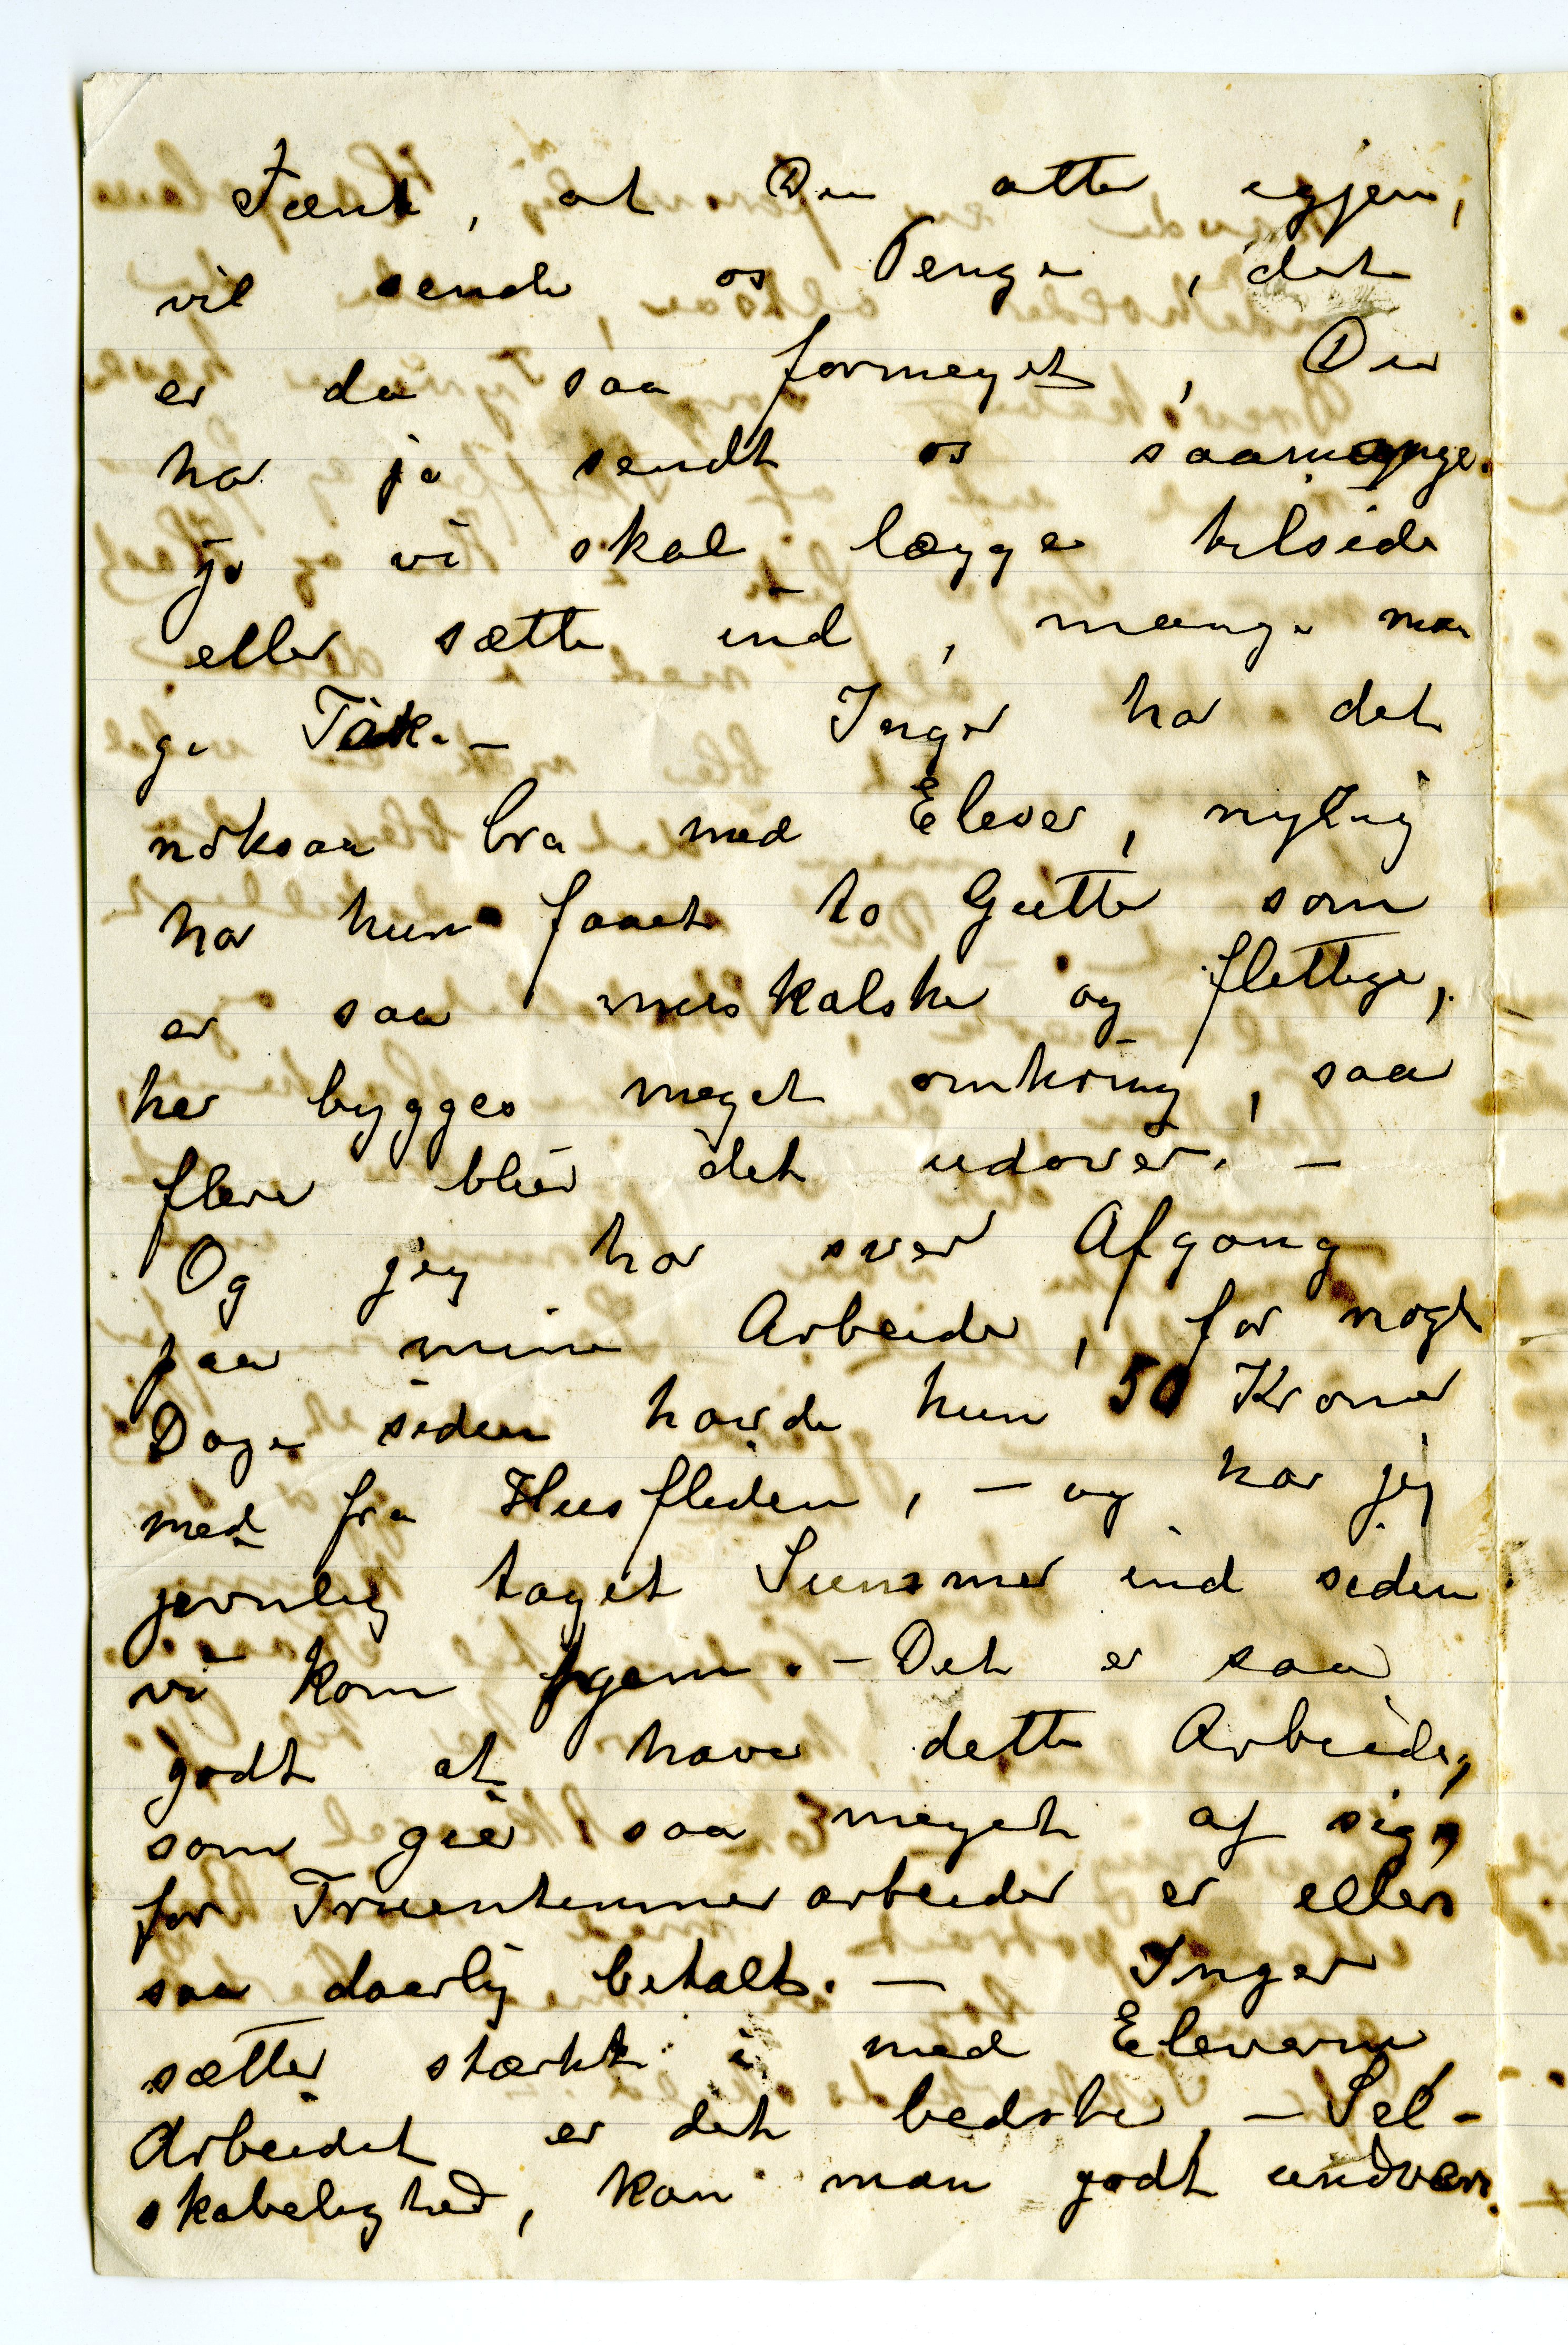 Tænk, at Du atter igjen,
vil sende os Penge, det
er da saa formeget, Du
har jo sendt os saamange.
jo vi skal lægge tilside
eller sætte ind, mange man
ge Tak. — Inger har det
noksaa bra med Elever, nylig
har hun faaet to Gutter som
er saa muskalske og flettige,
her bygges meget omkring, saa
flere bliër det udover. —
Og jeg har svær Afgang
paa mine Arbeider, for nogle
Dage siden havde hun 50 Kroner
med fra Husfliden, — og har jeg
jevnlig taget Summer ind siden
vi kom hjem. — Det er saa
godt at have dette Arbeide,
som giër saa meget af sig,
for Fruentimmerarbeider er ellers
saa daarlig betalt. — Inger
sætter stærkt i med Eleverne,
Arbeidet er det bedste, — Sel-
skabelighed, kan man godt undvære.